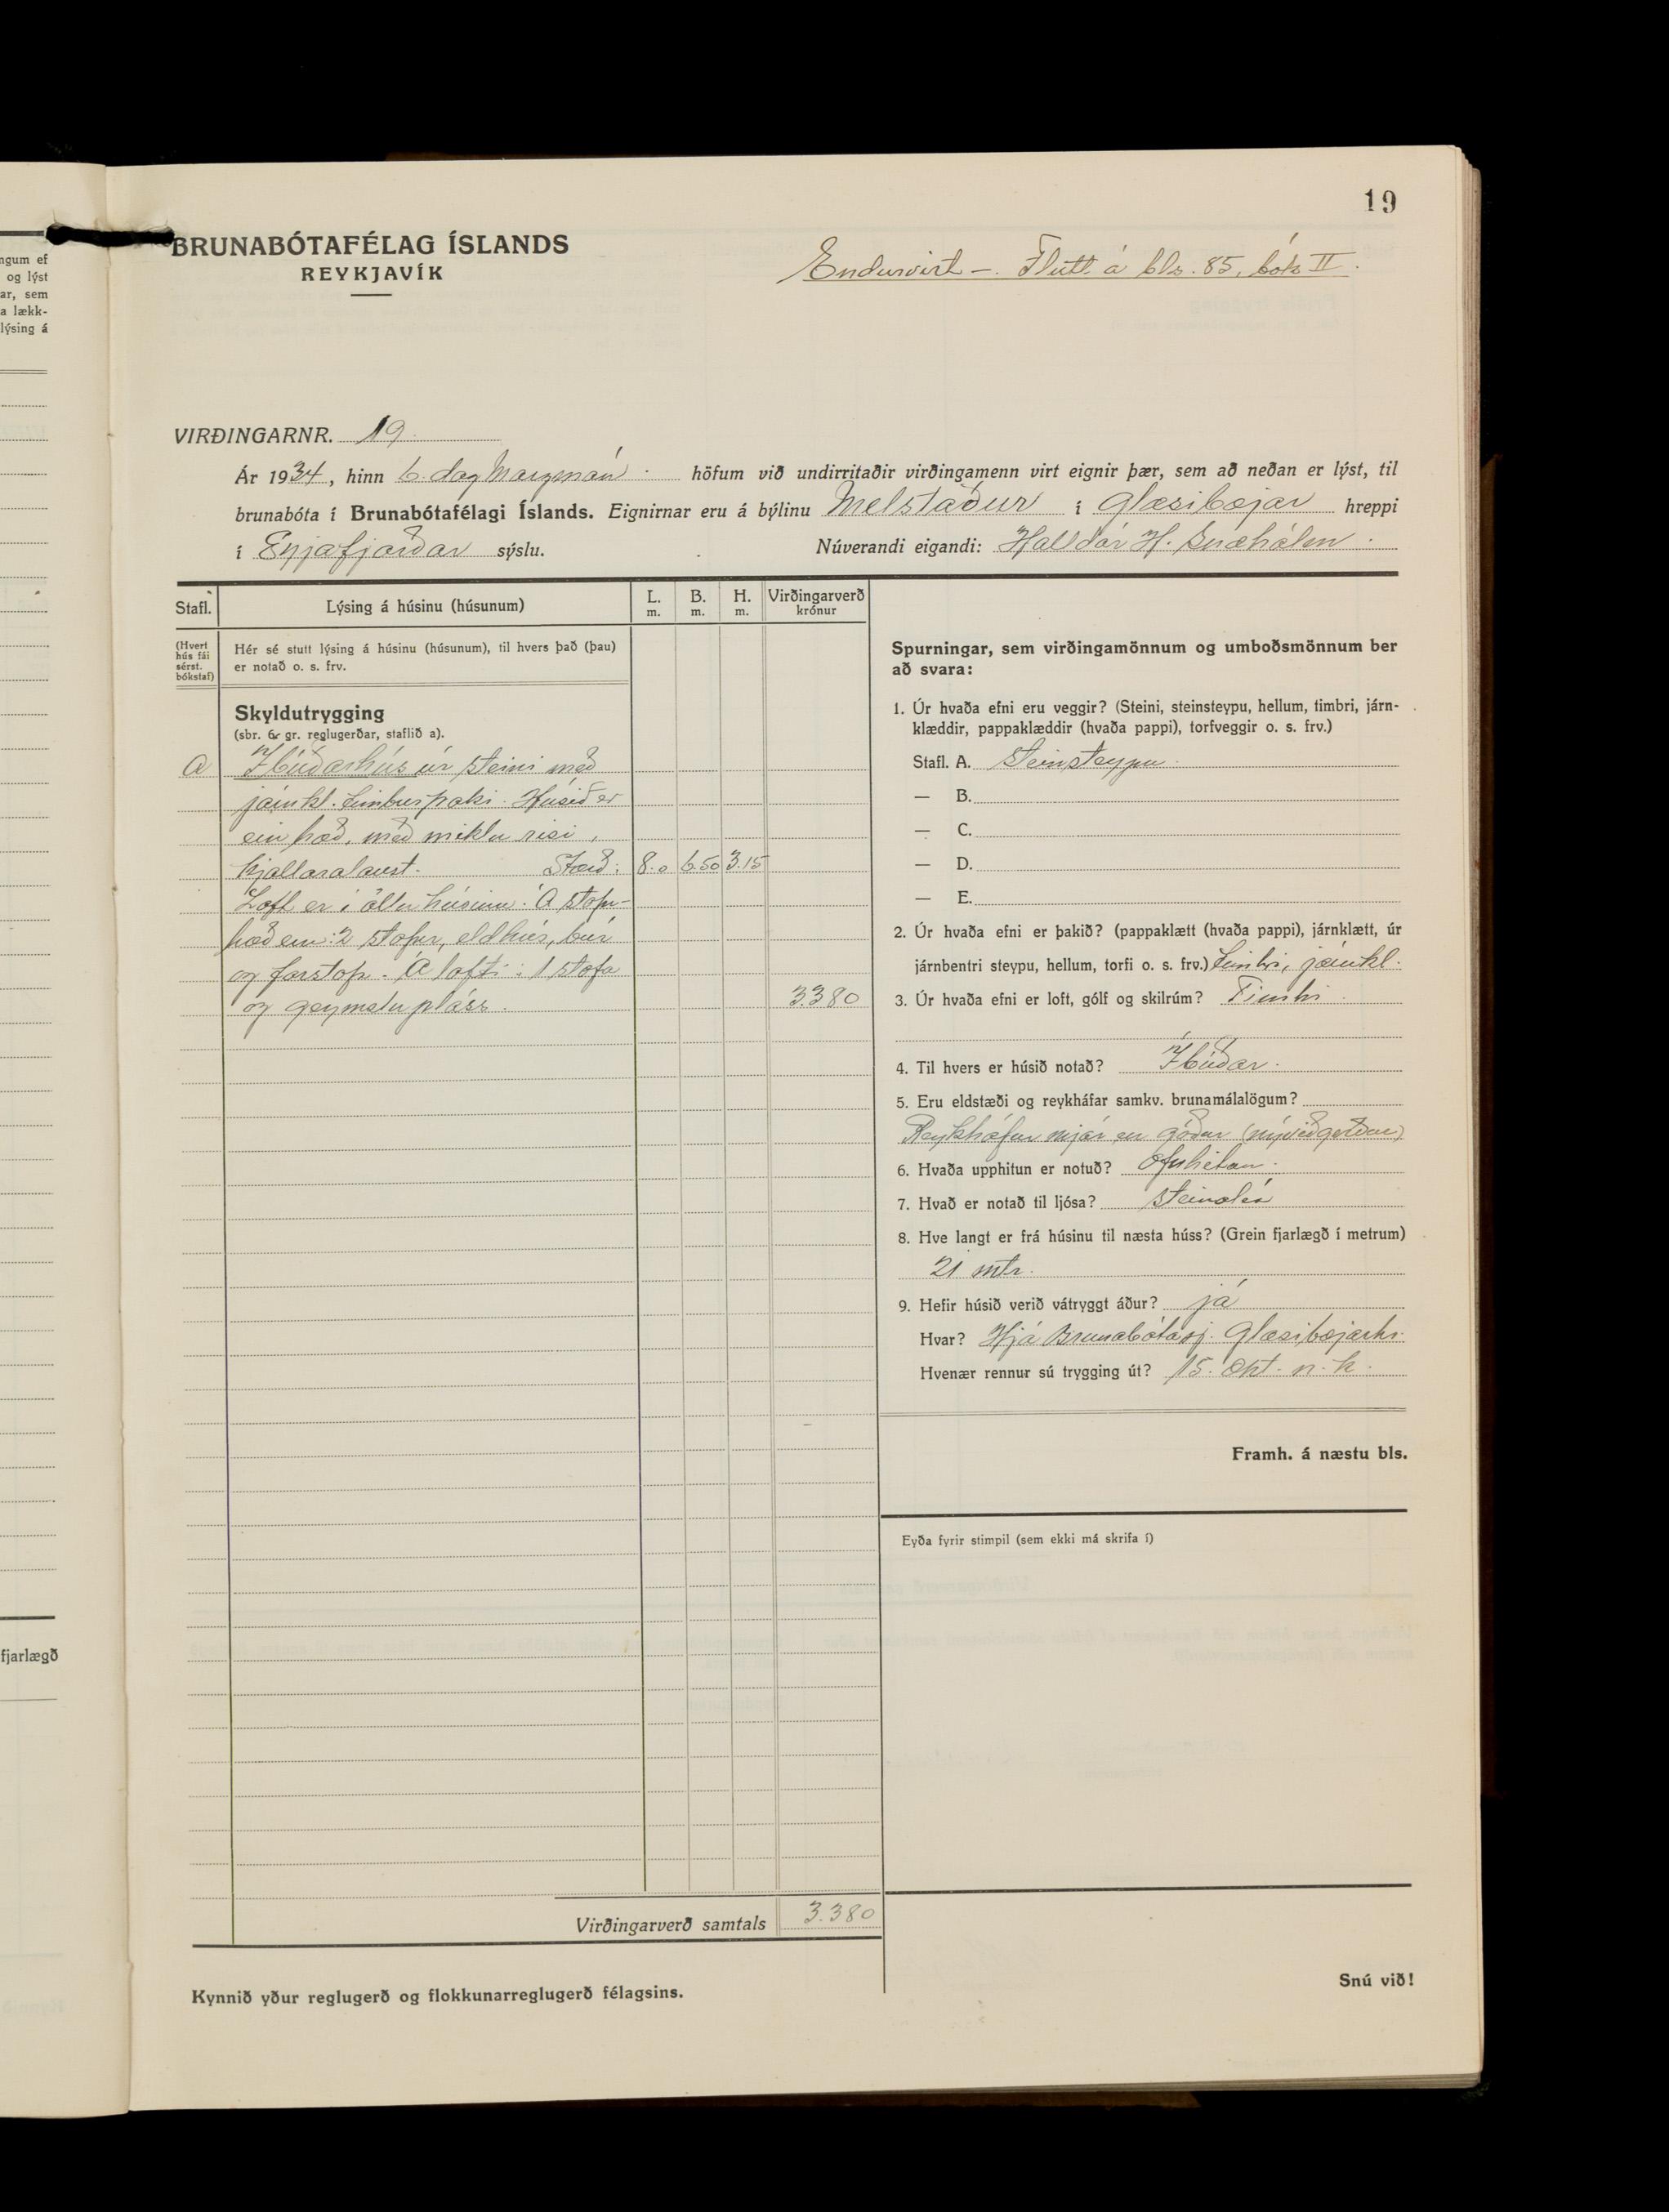 19
BRUNABÓTAFÉLAG ÍSLANDS
REYKJAVÍK
Endurvirt – . Flutt á bls. 85, bók II.
VIRÐINGARNR. 19
Ár 1934, hinn 6. dag Marzmán. höfum við undirritaðir virðingamenn virt eignir þær, sem að neðan er lýst, til
brunabóta í Brunabótafélagi Íslands. Eignirnar eru á býlinu Melstaður í Glæsibæjar hreppi
í Eyjafjarðar sýslu. Núverandi eigandi: Halldór H. Snæhólm.
Stafl. Lýsing á húsinu (húsunum) L. m. B. m. H. m. Virðingarverð krónur
(Hvert hús fái sérst. bókstaf)
Hér sé stutt lýsing á húsinu (húsunum), til hvers það (þau)
er notað o. s. frv.
Skyldutrygging
(sbr. 6. gr. reglugerðar, staflið a).
A Íbúðarhús úr steini með
járnkl. timburþaki. Húsið er
ein hæð, með miklu risi,
kjallaralaust. Stærð: 8.0 6.50 3.15
Loft er í öllu húsinu. Á stofu-
hæð eru: 2 stofur, eldhús, búr
og forstofu. Á lofti: 1 stofa
og geymslupláss. 3.380
Virðingarverð samtals 3.380
Kynnið yður reglugerð og flokkunarreglugerð félagsins.
Spurningar, sem virðingamönnum og umboðsmönnum ber
að svara:
1. Úr hvaða efni eru veggir? (Steini, steinsteypu, hellum, timbri, járn-
klæddir, pappaklæddir (hvaða pappi), torfveggir o. s. frv.)
Stafl. A. Steinsteypu.
— B.
— C.
— D.
— E.
2. Úr hvaða efni er þakið? (pappaklætt (hvaða pappi), járnklætt, úr
járnbentri steypu, hellum, torfi o. s. frv.) timbri, járnkl.
3. Úr hvaða efni er loft, gólf og skilrúm? Timbri.
4. Til hvers er húsið notað? Íbúðar.
5. Eru eldstæði og reykháfar samkv. brunamálalögum?
Reykháfur mjór en góður (nýviðgerður)
6. Hvaða upphitun er notuð? Ofnhitun.
7. Hvað er notað til ljósa? Steinolía
8. Hve langt er frá húsinu til næsta húss? (Grein fjarlægð í metrum)
21 mtr.
9. Hefir húsið verið vátryggt áður? já
Hvar? Hjá Brunabótasj. Glæsibæjarhr.
Hvenær rennur sú trygging út? 15. okt. n. k.
Framh. á næstu bls.
Eyða fyrir stimpil (sem ekki má skrifa í)
Snú við!
ngum ef
og lýst
ar, sem
a lækk-
lýsing á
fjarlægð